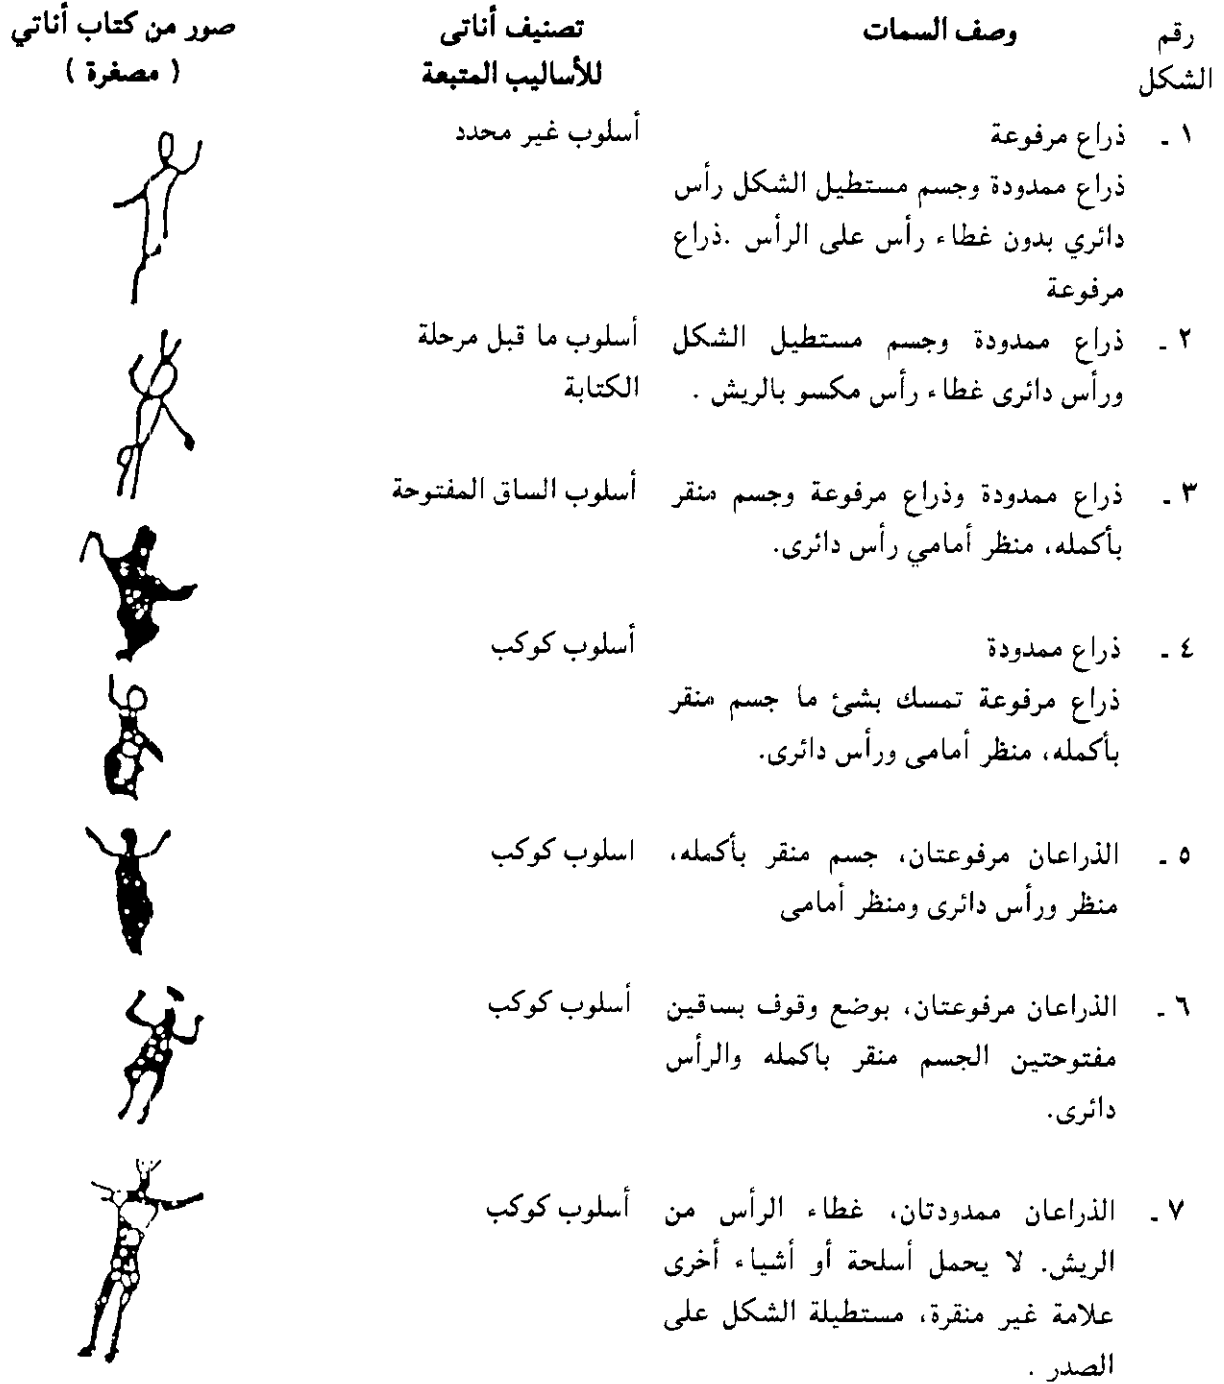 رقم
الشكل
وصف السمات
تصنيف أناتى
للأساليب المتبعة
صور من كتاب أناتي
( مصغرة )
١ ـ ذراع مرفوعة
ذراع ممدودة وجسم مستطيل الشكل رأس
دائري بدون غطاء رأس على الرأس .ذراع
مرفوعة
أسلوب غير محدد
٢ ـ ذراع ممدودة وجسم مستطيل الشكل
ورأس دائرى غطاء رأس مكسو بالريش .
أسلوب ما قبل مرحلة
الكتابة
٣ ـ ذراع ممدودة وذراع مرفوعة وجسم منقر
بأكمله، منظر أمامي رأس دائرى.
أسلوب الساق المفتوحة
٤ ـ ذراع ممدودة
ذراع مرفوعة تمسك بشئ ما جسم منقر
بأكمله، منظر أمامى ورأس دائرى.
أسلوب كوكب
٥ ـ الذراعان مرفوعتان، جسم منقر بأكمله،
منظر ورأس دائرى ومنظر أمامى
اسلوب كوكب
٦ ـ الذراعان مرفوعتان، بوضع وقوف بساقين
مفتوحتين الجسم منقر باكمله والرأس
دائرى.
أسلوب كوكب
٧ ـ الذراعان ممدودتان، غطاء الرأس من
الريش. لا يحمل أسلحة أو أشياء أخرى
علامة غير منقرة، مستطيلة الشكل على
الصدر .
أسلوب كوكب